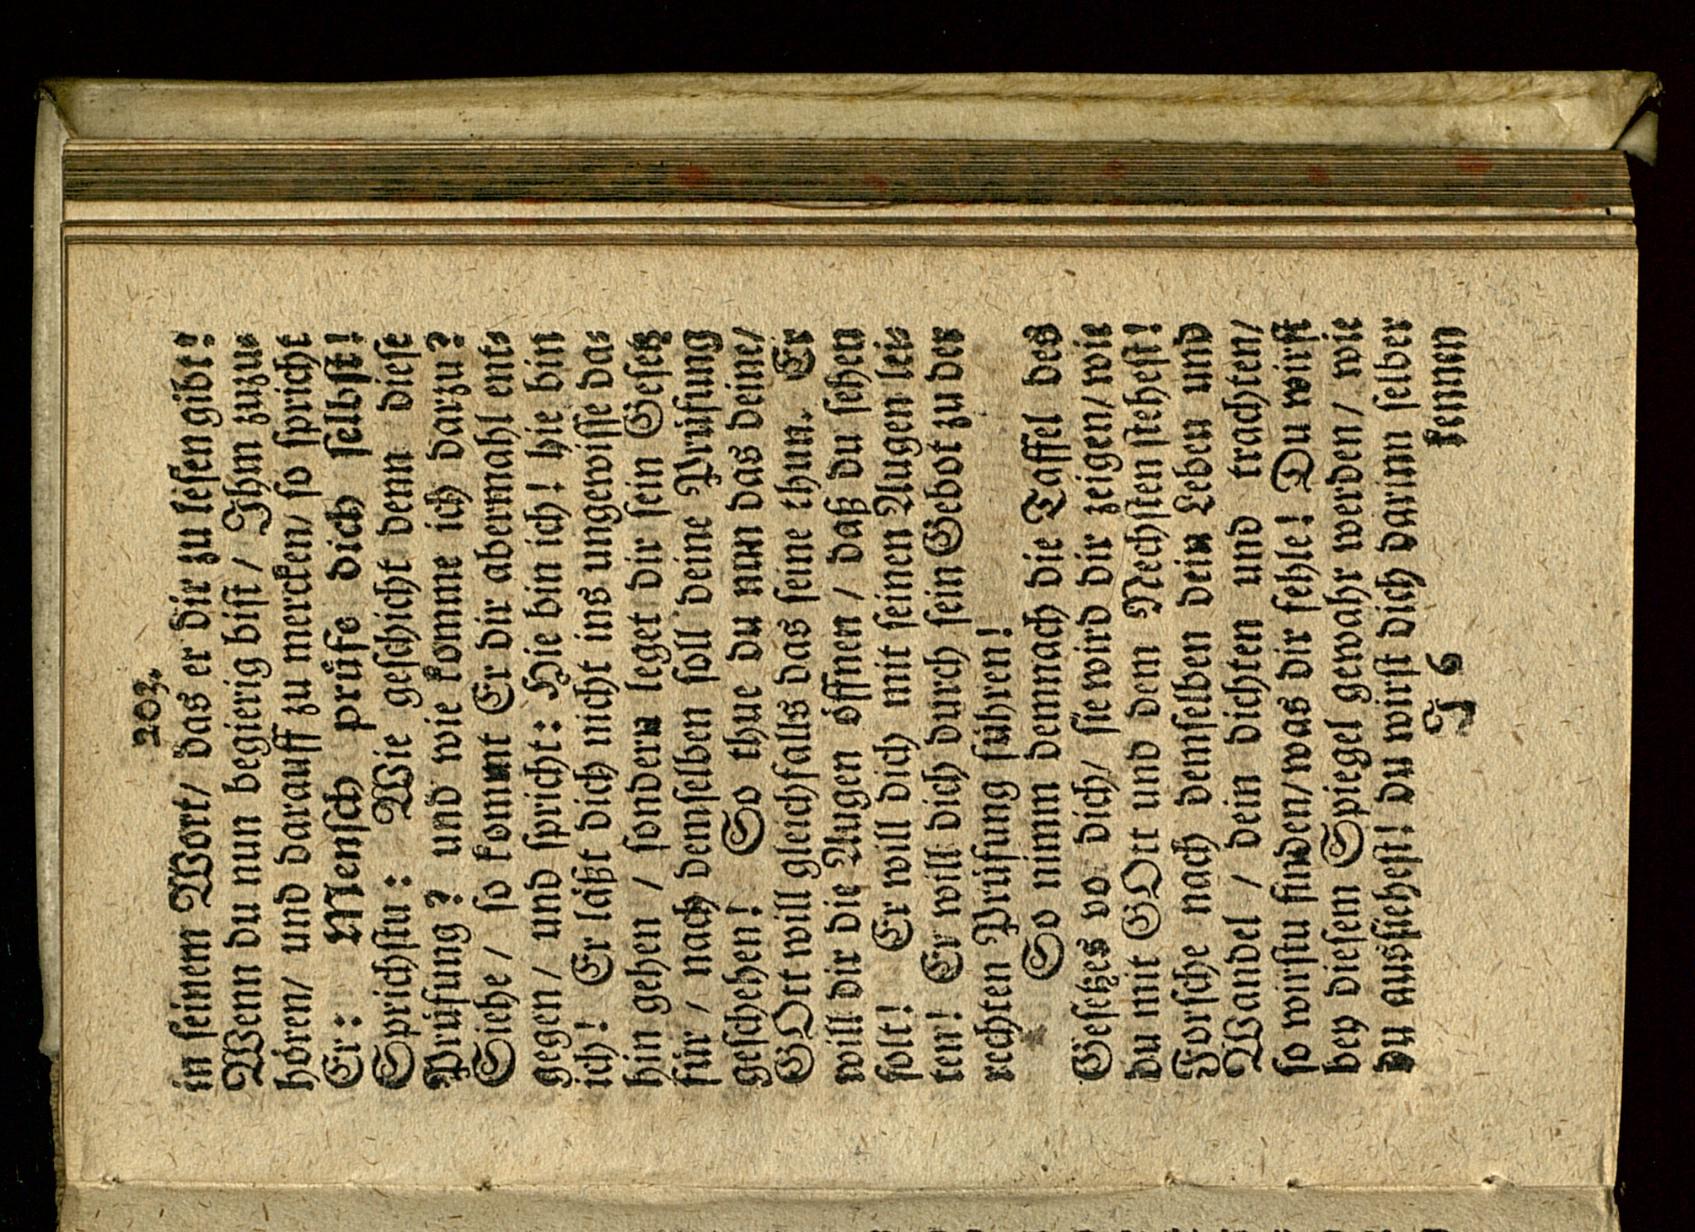 203.
in seinem Wort/ das er dir zu lesen gibt?
Wenn du nun begierig bist / Ihm zuzu⸗
hören/ und darauff zu mercken/ so spricht
Er: Mensch prüfe dich selbst!
Sprichstu: Wie geschicht denn diese
Prüfung? und wie komme ich darzu?
Siehe / so kommt Er dir abermahl ent⸗
gegen/ und spricht: Hie bin ich! hie bin
ich! Er läßt dich nicht ins ungewisse da⸗
hin gehen / sondern leget dir sein Gesetz
für / nach demselben soll deine Prüfung
geschehen! So thue du nun das deine/
GOtt will gleichfalls das seine thun. Er
will dir die Augen öffnen / daß du sehen
solt! Er will dich mit seinen Augen lei⸗
ten! Er will dich durch sein Gebot zu der
rechten Prüfung führen!
So nimm demnach die Taffel des
Gesetzes vo dich/ sie wird dir zeigen/ wie
du mit GOtt und dem Nechsten stehest!
Forsche nach demselben dein Leben und
Wandel / dein dichten und trachten/
so wirstu finden/ was dir fehle! Du wirst
bey diesem Spiegel gewahr werden/ wie
du aussiehest! du wirst dich darinn selber
J 6 kennen